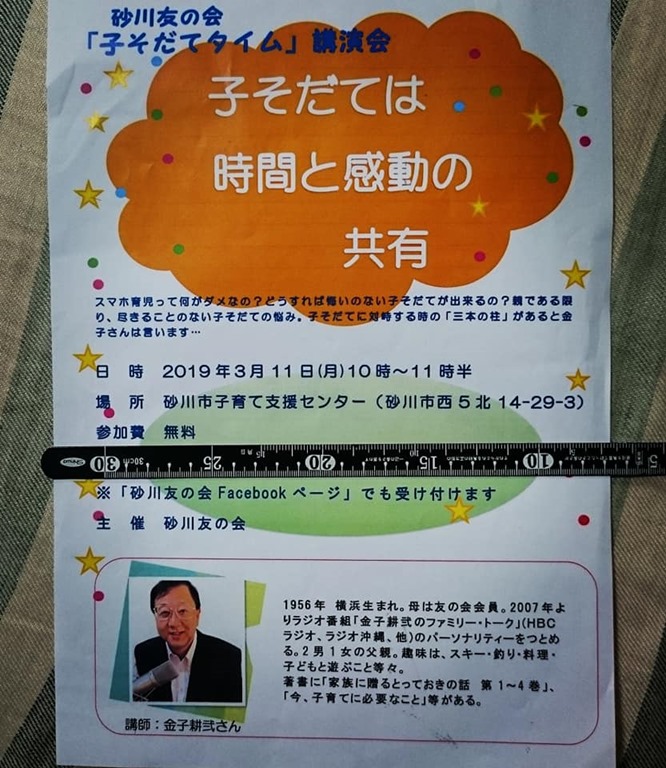 砂川友の会
「子そだてタイム」講演会
子そだては
時間と感動の
共有
スマホ育児って何がダメなの？どうすれば悔いのない子そだてが出来るの？親である限
り、尽きることのない子そだての悩み。子そだてに対峙する時の「三本の柱」があると金
子さんは言います…
日　時　2019年3月11日(月)10時～11時半
場　所　砂川市子育て支援センター（砂川市西5北14-29-3）
参加費　無料
30 30cm 25 20 15 10 5
※「砂川友の会Facebookページ」でも受け付けます
主　催　砂川友の会
1956年　横浜生まれ。母は友の会会員。2007年よ
りラジオ番組「金子耕弐のファミリー・トーク」（HBC
ラジオ、ラジオ沖縄、他)のパーソナリティーをつとめ
る。2男1女の父親。趣味は、スキー・釣り・料理・
子どもと遊ぶこと等々。
著書に「家族に贈るとっておきの話　第1～4巻」、
「今、子育てに必要なこと」等がある。
講師：金子耕弐さん